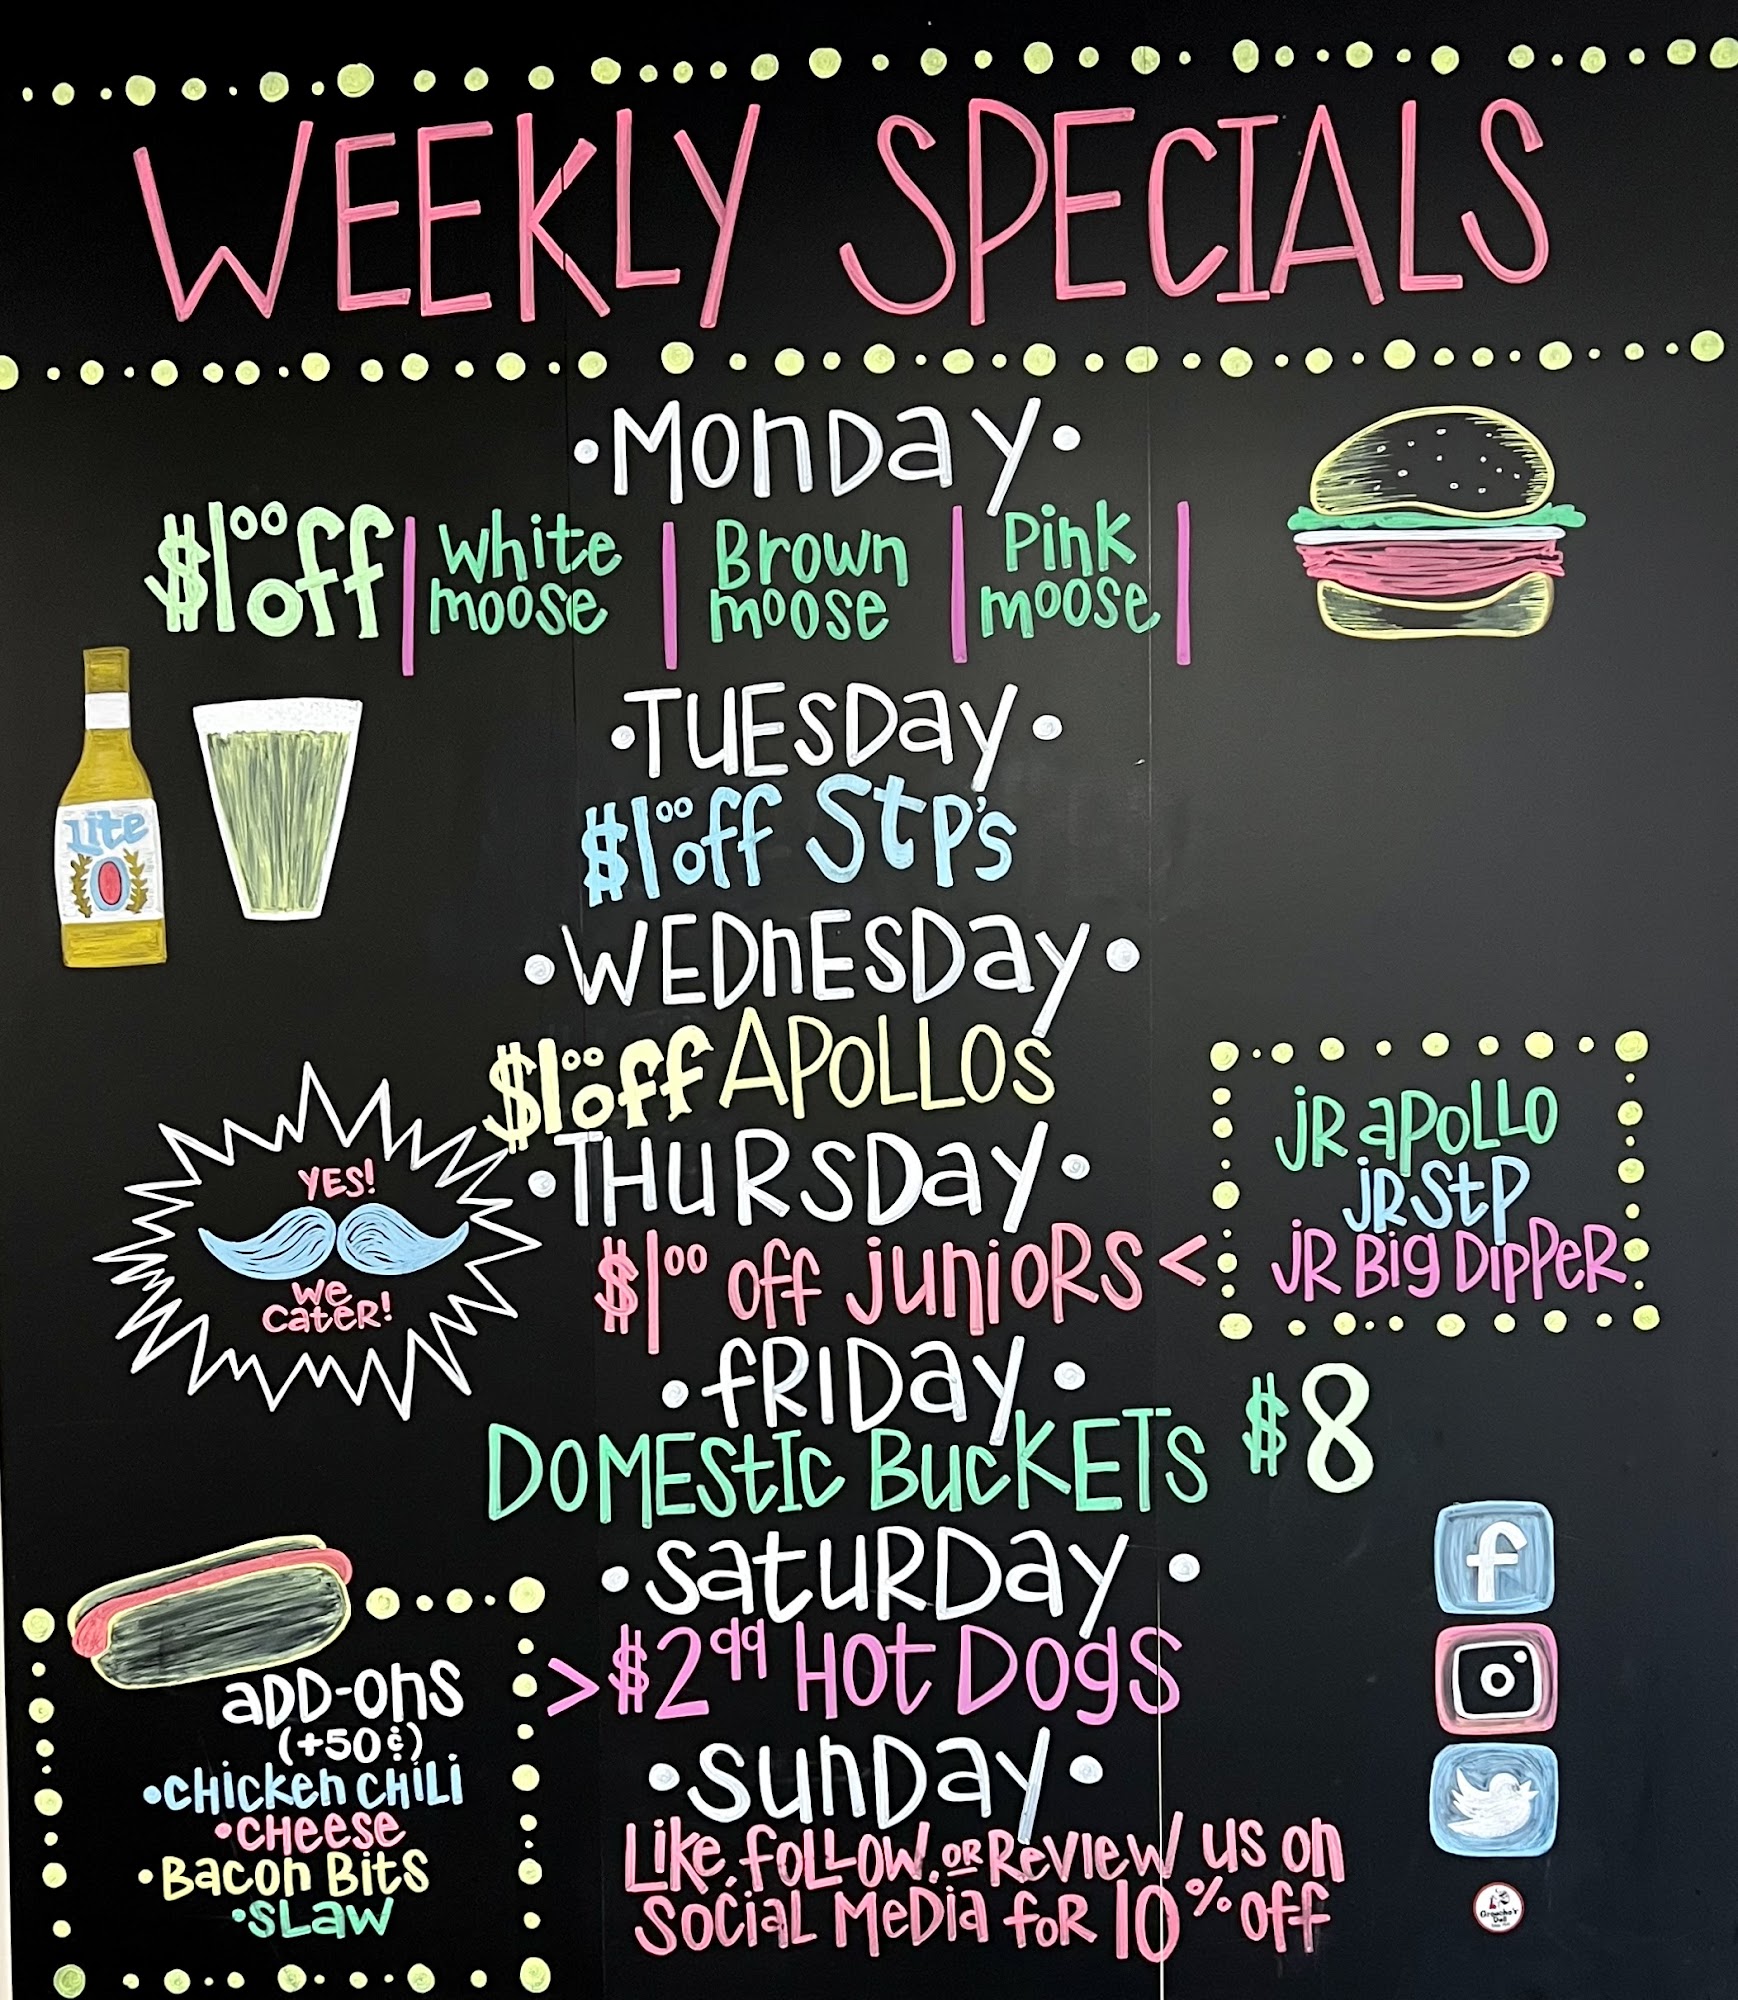 WEEKLY SPECIALS
•MONDAY•
$1⁰⁰ off | White moose | Brown moose | Pink moose |
•TUESDAY•
$1⁰⁰ off STP's
•WEDNESDAY•
$1⁰⁰ off APOLLOS
•THURSDAY•
$1⁰⁰ off JUNIORS <
JR APOLLO
JR STP
JR Big DIPPER
YES!
We
CateR!
•FRIDAY•
DOMESTIC BUCKETS $8
•SATURDAY•
> $2⁹⁹ HOT DOGS
ADD-ONS
(+50¢)
•CHICKEN CHILI
•CHEESE
•BACON BITS
•SLAW
•SUNDAY•
Like, FOLLOW, OR Review us on
SOCIAL MEDIA FOR 10% off
Lite
f
Groucho's
Deli